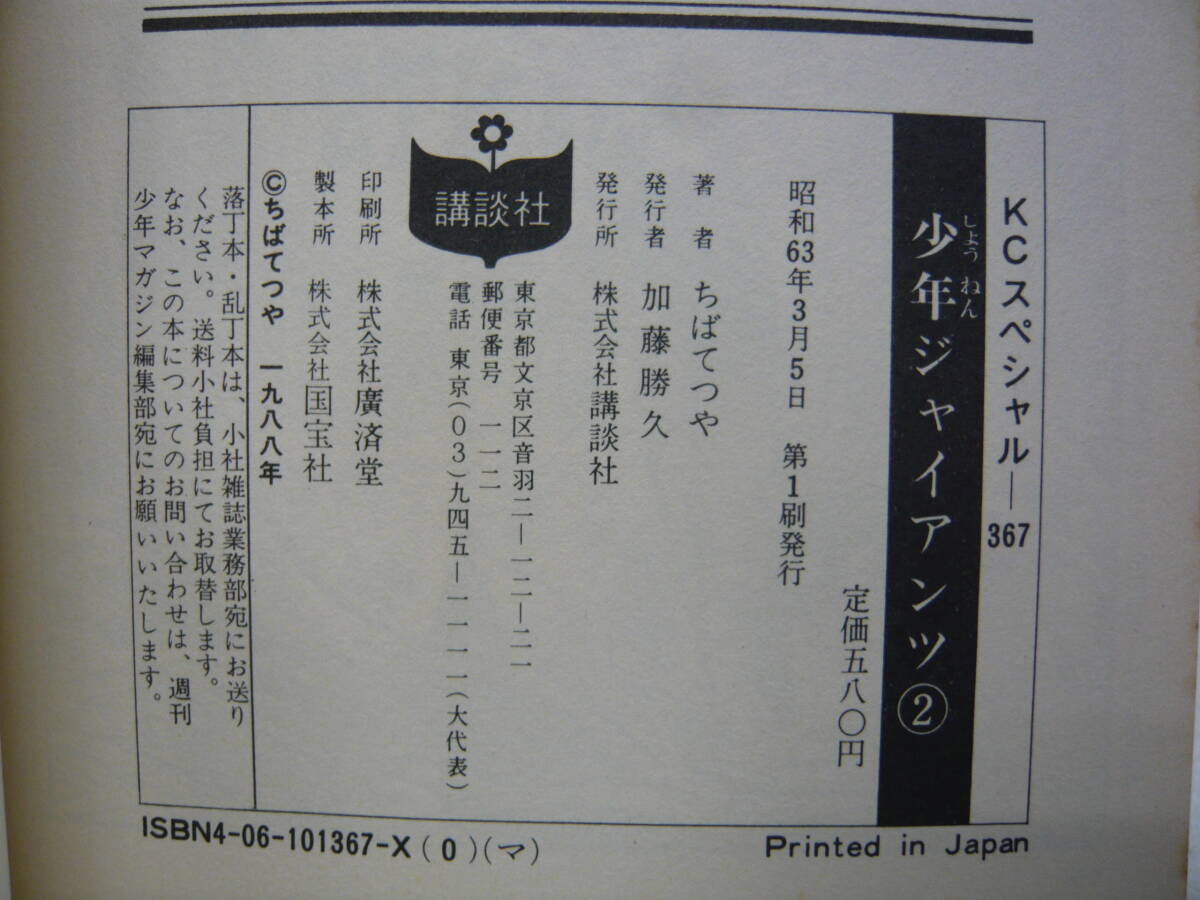 KCスペシャル—367
少年ジャイアンツ②
しょうねん
定価五八〇円
昭和63年3月5日 第1刷発行
著者 ちばてつや
発行者 加藤勝久
発行所 株式会社講談社
東京都文京区音羽二—一二—二一
郵便番号 一一二
電話 東京(03)九四五—一一一一(大代表)
講談社
印刷所 株式会社廣済堂
製本所 株式会社国宝社
©ちばてつや 一九八八年
落丁本・乱丁本は、小社雑誌業務部宛にお送り
ください。送料小社負担にてお取替します。
なお、この本についてのお問い合わせは、週刊
少年マガジン編集部宛にお願いいたします。
ISBN4-06-101367-X(0)(マ)
Printed in Japan